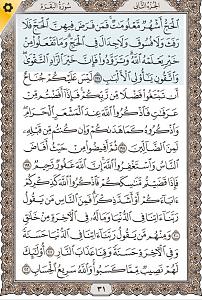 الجزء الثاني سورة البقرة
ٱلْحَجُّ أَشْهُرٌ مَّعْلُومَٰتٌ فَمَن فَرَضَ فِيهِنَّ ٱلْحَجَّ فَلَا
رَفَثَ وَلَا فُسُوقَ وَلَا جِدَالَ فِى ٱلْحَجِّ وَمَا تَفْعَلُوا۟ مِنْ
خَيْرٍ يَعْلَمْهُ ٱللَّهُ وَتَزَوَّدُوا۟ فَإِنَّ خَيْرَ ٱلزَّادِ ٱلتَّقْوَىٰ
وَٱتَّقُونِ يَٰٓأُو۟لِى ٱلْأَلْبَٰبِ ١٩٧ لَيْسَ عَلَيْكُمْ جُنَاحٌ
أَن تَبْتَغُوا۟ فَضْلًا مِّن رَّبِّكُمْ فَإِذَآ أَفَضْتُم مِّنْ
عَرَفَٰتٍ فَٱذْكُرُوا۟ ٱللَّهَ عِندَ ٱلْمَشْعَرِ ٱلْحَرَامِ
وَٱذْكُرُوهُ كَمَا هَدَىٰكُمْ وَإِن كُنتُم مِّن قَبْلِهِۦ
لَمِنَ ٱلضَّآلِّينَ ١٩٨ ثُمَّ أَفِيضُوا۟ مِنْ حَيْثُ أَفَاضَ
ٱلنَّاسُ وَٱسْتَغْفِرُوا۟ ٱللَّهَ إِنَّ ٱللَّهَ غَفُورٌ رَّحِيمٌ ١٩٩
فَإِذَا قَضَيْتُم مَّنَٰسِكَكُمْ فَٱذْكُرُوا۟ ٱللَّهَ كَذِكْرِكُمْ
ءَابَآءَكُمْ أَوْ أَشَدَّ ذِكْرًا فَمِنَ ٱلنَّاسِ مَن يَقُولُ
رَبَّنَآ ءَاتِنَا فِى ٱلدُّنْيَا وَمَا لَهُۥ فِى ٱلْءَاخِرَةِ مِنْ خَلَٰقٍ
٢٠٠ وَمِنْهُم مَّن يَقُولُ رَبَّنَآ ءَاتِنَا فِى ٱلدُّنْيَا حَسَنَةً
وَفِى ٱلْءَاخِرَةِ حَسَنَةً وَقِنَا عَذَابَ ٱلنَّارِ ٢٠١ أُو۟لَٰٓئِكَ
لَهُمْ نَصِيبٌ مِّمَّا كَسَبُوا۟ وَٱللَّهُ سَرِيعُ ٱلْحِسَابِ ٢٠٢
٣١